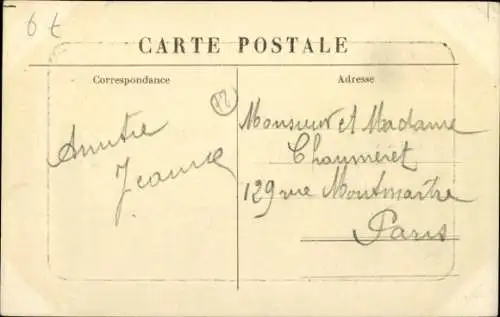 6 t
CARTE POSTALE
Correspondance
Adresse
12
Amitié
Jeanne
Monsieur et Madame
Chauméret
129 rue Montmartre
Paris